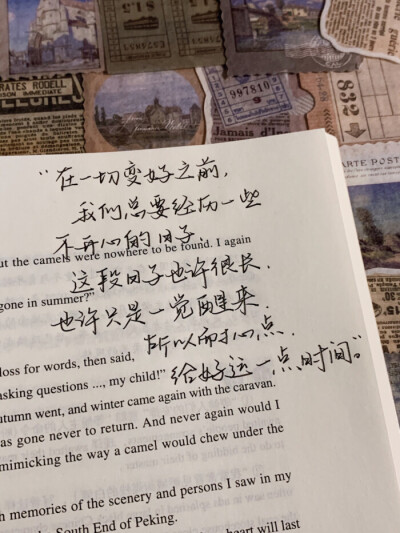 ARATES RODELL
832
997810
Jamais d'incend
ARTE POST
“在一切变好之前，
我们总要经历一些
不开心的日子，
ut the camels were nowhere to be found. I again
这段日子也许很长，
gone in summer?”
也许只是一觉醒来.
loss for words, then said,
所以耐心点.
asking questions ..., my child!”
给好运一点时间。”
utumn went, and winter came again with the caravan.
as gone never to return. And never again would I
mimicking the way a camel would chew under the
h memories of the scenery and persons I saw in my
the South End of Peking.
heart will last